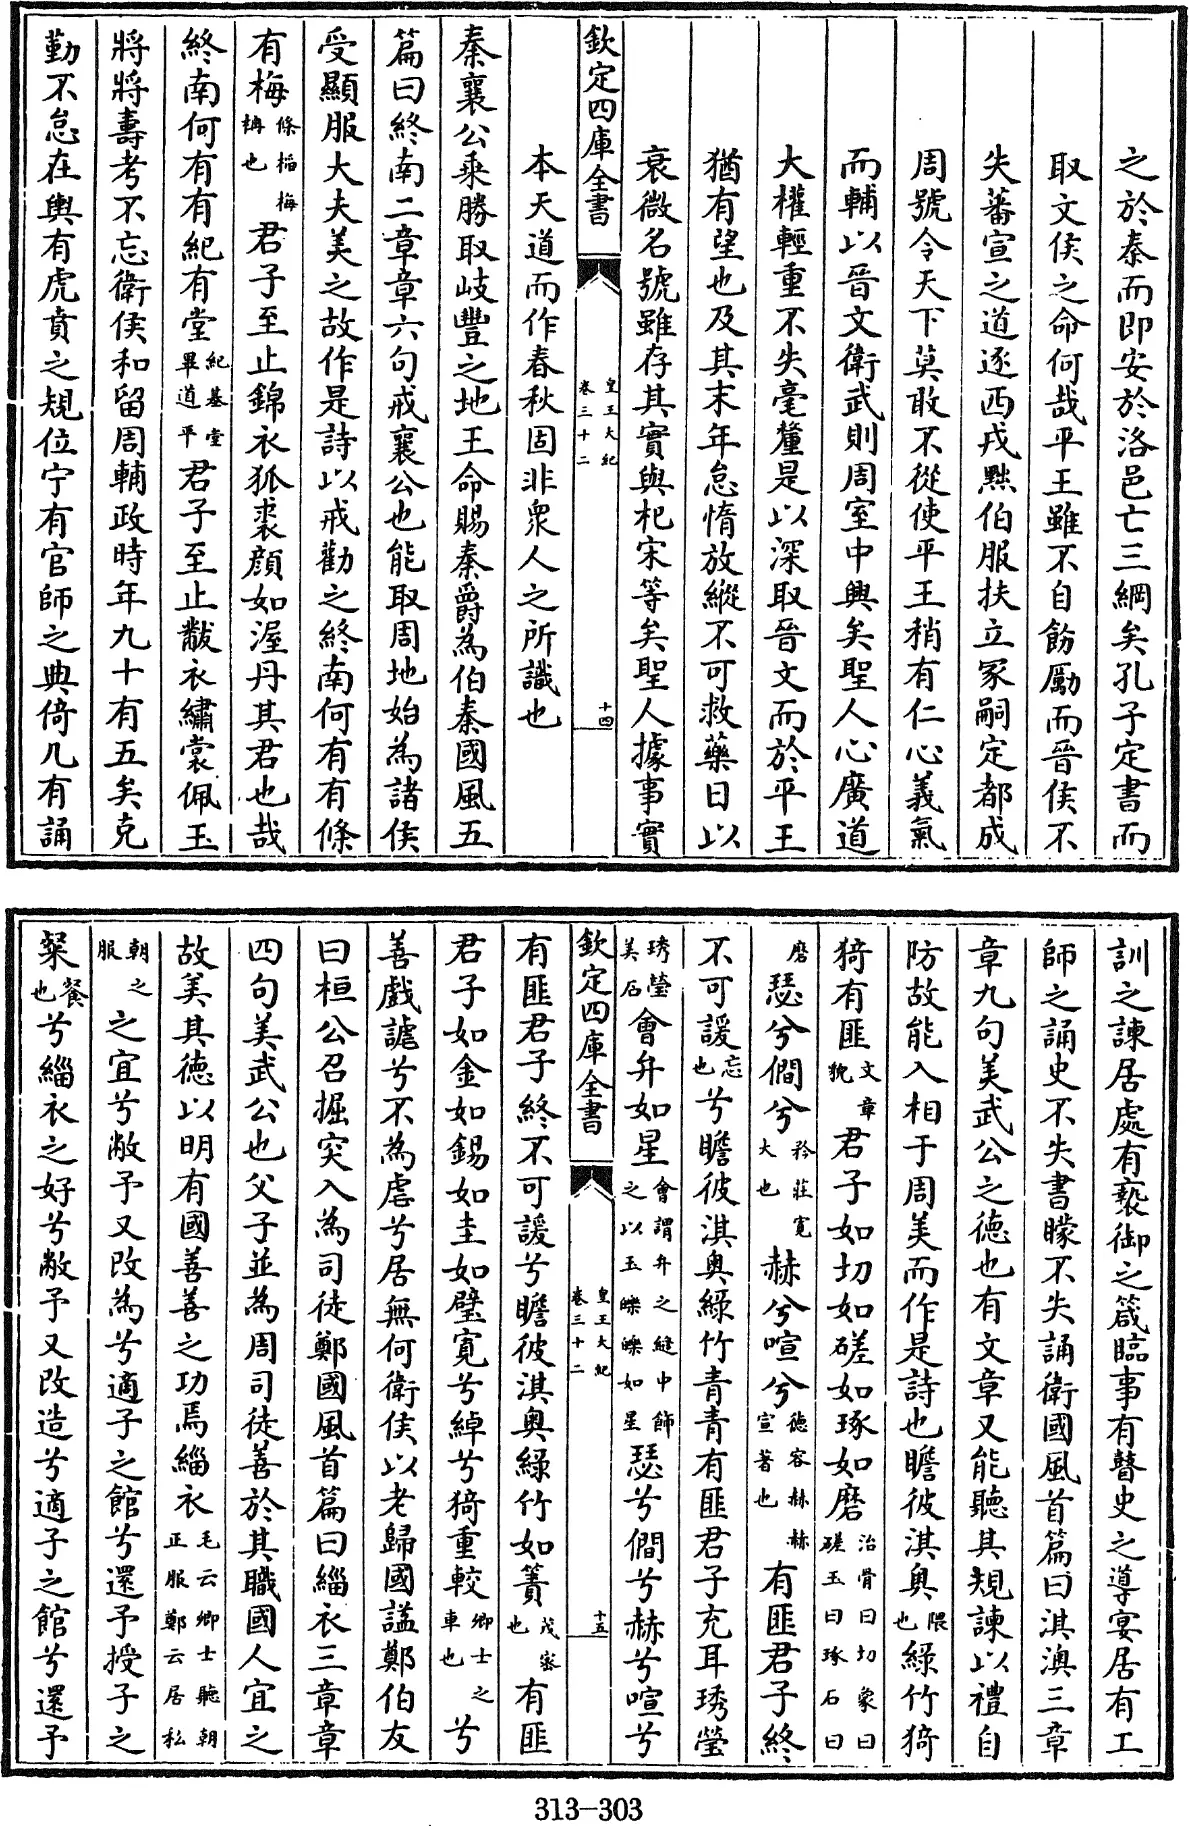 之於秦而即安於洛邑亡三綱矣孔子定書而
取文侯之命何哉平王雖不自飭勵而晉侯不
失蕃宣之道逐西戎黜伯服扶立冢嗣定都成
周號令天下莫敢不從使平王稍有仁心義氣
而輔以晉文衛武則周室中興矣聖人心廣道
大權輕重不失毫釐是以深取晉文而於平王
猶有望也及其末年怠惰放縱不可救藥日以
衰微名號雖存其實與杞宋等矣聖人據事實
欽定四庫全書 皇王大紀 卷三十二 十四
本天道而作春秋固非衆人之所識也
秦襄公乘勝取岐豐之地王命賜秦爵為伯秦國風五
篇曰終南二章章六句戒襄公也能取周地始為諸侯
受顯服大夫美之故作是詩以戒勸之終南何有有條
有梅條槄梅柟也君子至止錦衣狐裘顔如渥丹其君也哉
終南何有有紀有堂紀基堂畢道平君子至止黻衣繡裳佩玉
將將壽考不忘衛侯和留周輔政時年九十有五矣克
勤不怠在輿有虎賁之規位宁有官師之典倚几有誦
訓之諫居處有褻御之箴臨事有瞽史之導宴居有工
師之誦史不失書矇不失誦衛國風首篇曰淇澳三章
章九句美武公之德也有文章又能聽其規諫以禮自
防故能入相于周美而作是詩也瞻彼淇奥隈也綠竹猗
猗有匪文章貌君子如切如磋如琢如磨治骨曰切象曰磋玉曰琢石曰
磨瑟兮僩兮矜莊寛大也赫兮喧兮德容赫赫宣著也有匪君子終
不可諼忘也兮瞻彼淇奥綠竹青青有匪君子充耳琇瑩
琇瑩美石會弁如星會謂弁之縫中飾之以玉皪皪如星瑟兮僩兮赫兮喧兮
欽定四庫全書 皇王大紀 卷三十二 十五
有匪君子終不可諼兮瞻彼淇奥綠竹如簀茂密也有匪
君子如金如錫如圭如璧寛兮綽兮猗重較卿士之車也兮
善戲謔兮不為虐兮居無何衛侯以老歸國諡鄭伯友
曰桓公召掘突入為司徒鄭國風首篇曰緇衣三章章
四句美武公也父子並為周司徒善於其職國人宜之
故美其德以明有國善善之功焉緇衣毛云卿士聽朝正服鄭云居私
朝之服之宜兮敝予又改為兮適子之館兮還予授子之
粲餐也兮緇衣之好兮敝予又改造兮適子之館兮還予
313-303